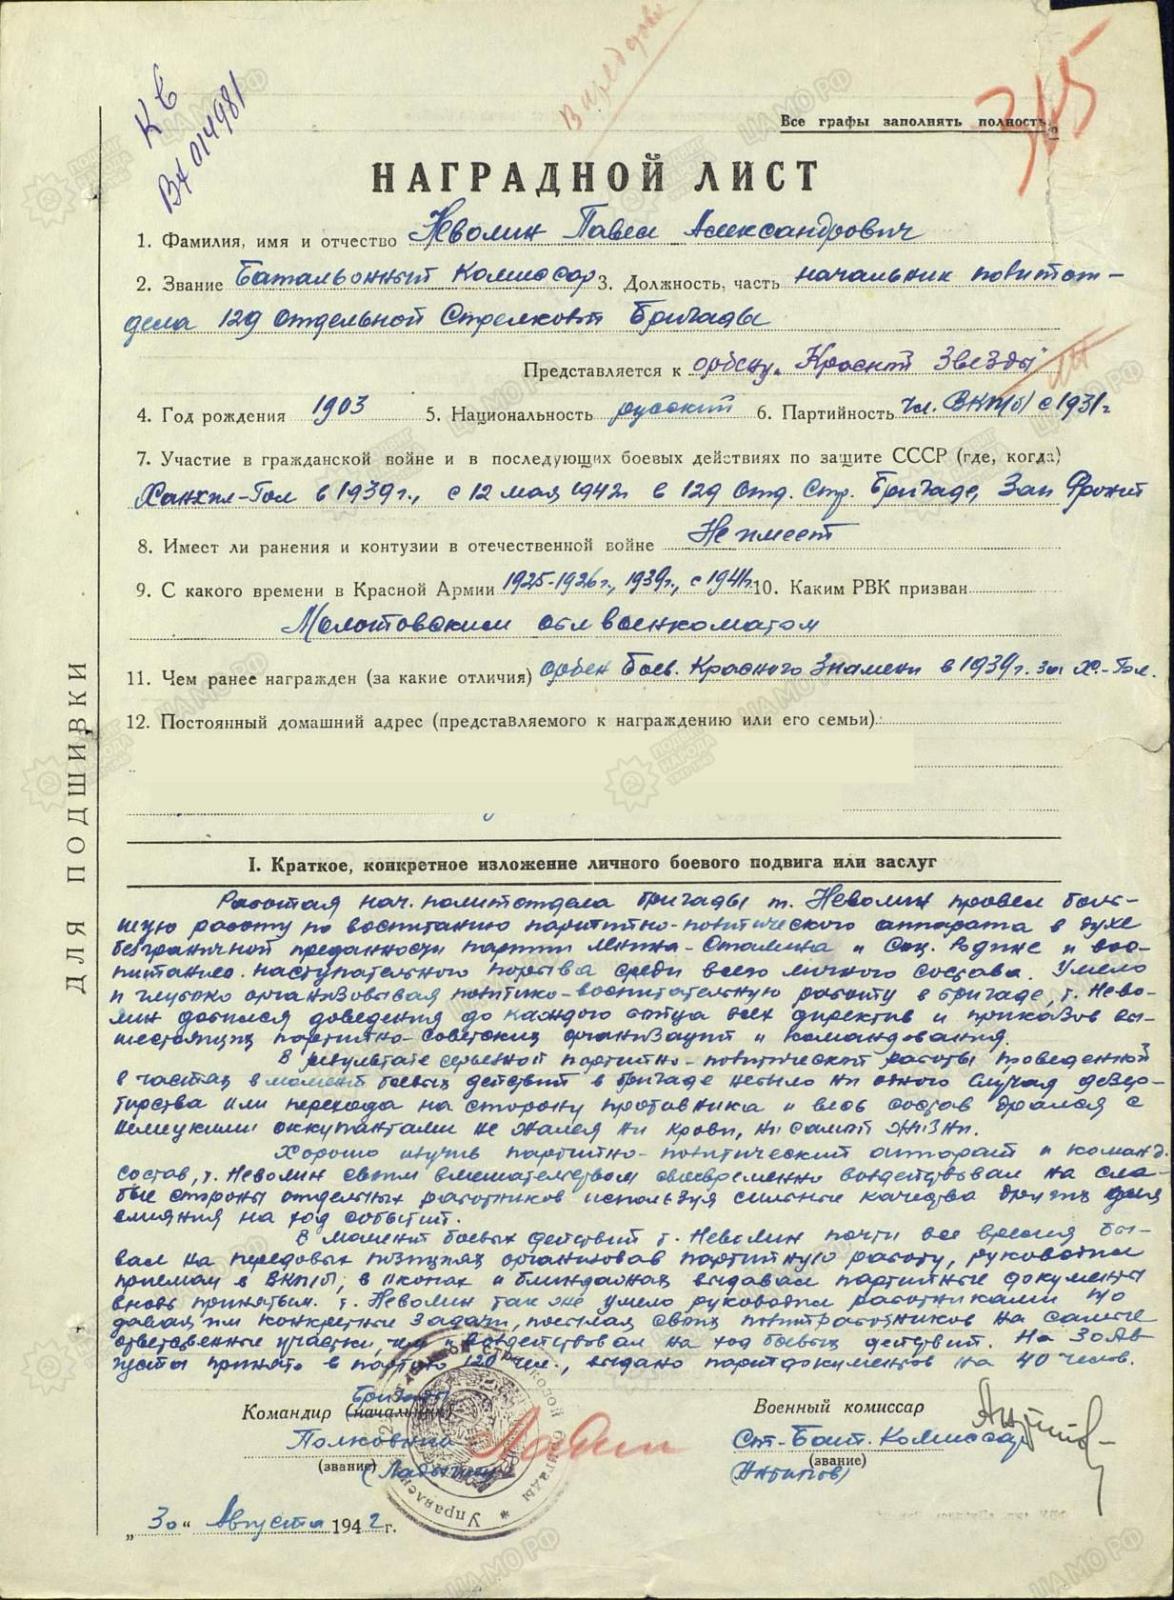 КБ
Вх 014981
Все графы заполнять полностью
315
НАГРАДНОЙ ЛИСТ
1. Фамилия, имя и отчество Неволин Павел Александрович
2. Звание Батальонный Комиссар 3. Должность, часть начальник политот-
дела 129 отдельной Стрелковой Бригады
Представляется к ордену "Красной Звезды"
4. Год рождения 1903 5. Национальность русский 6. Партийность Чл. ВКП(б) с 1931 г
7. Участие в гражданской войне и в последующих боевых действиях по защите СССР (где, когда)
Халхин-Гол в 1939 г., с 12 мая 1942 г в 129 Отд. Стр. Бригаде, Зап Фронт
8. Имеет ли ранения и контузии в отечественной войне Не имеет
9. С какого времени в Красной Армии 1925-1926 г., 1939 г., с 1941 г. 10. Каким РВК призван
Молотовским облвоенкоматом
11. Чем ранее награжден (за какие отличия) орден Боев. Красного Знамени в 1939 г. за Х.-Гол.
12. Постоянный домашний адрес (представляемого к награждению или его семьи)
ДЛЯ ПОДШИВКИ
I. Краткое, конкретное изложение личного боевого подвига или заслуг
Работая нач. политотдела бригады т. Неволин провел боль-
шую работу по воспитанию партийно-политического аппарата в духе
безграничной преданности партии Ленина-Сталина и Соц. Родине и вос-
питанию наступательного порыва среди всего личного состава. Умело
и глубоко организовывая политико-воспитательную работу в бригаде, т. Нево-
лин добился доведения до каждого бойца всех директив и приказов вы-
шестоящих партийно-советских организаций и командования.
В результате серьезной партийно-политической работы проведенной
в частях в момент боевых действий в бригаде небыло ни одного случая дезер-
тирства или перехода на сторону противника и весь состав дрался с
немецкими оккупантами не жалея ни крови, ни самой жизни.
Хорошо изучив партийно-политический аппарат и команд.
состав, т. Неволин своим вмешательством своевременно воздействовал на сла-
бые стороны отдельных работников используя сильные качества других для
влияния на ход событий.
В момент боевых действий т. Неволин почти все время бы-
вал на передовых позициях организовав партийную работу, руководил
приемом в ВКП(б), в окопах и блиндажах выдавал партийные документы
вновь принятым. т. Неволин так же умело руководил работниками по
давая им конкретные задачи, посылая своих политработников на самые
ответственные участки, чем и воздействовал на ход боевых действий. На 30 Ав-
густа принято в партию 120 чел., выдано партдокументов на 40 челов.
Бригады
Командир (начальник) Военный комиссар
Полковник Ст. Бат. Комиссар
(звание) (Ладыгин) (звание)
(Антипов)
„30" Августа 1942 г.